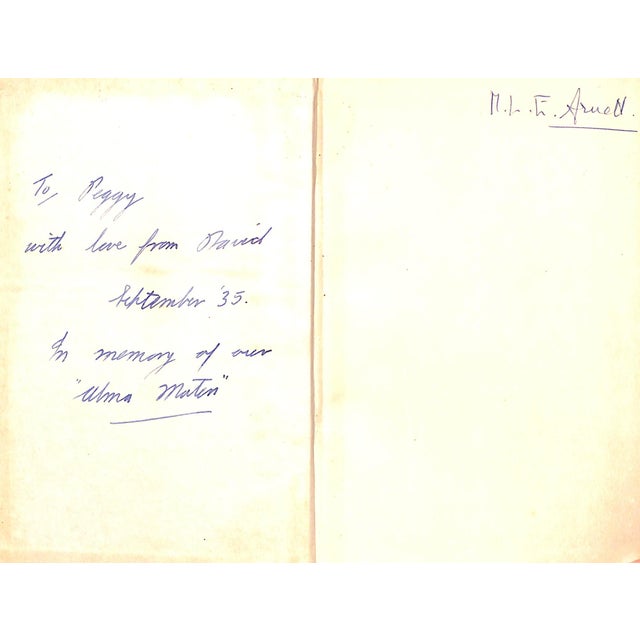 To, Peggy
with love from David
September '35.
In memory of our
"Alma Mater"
M. L. E. Arnott.